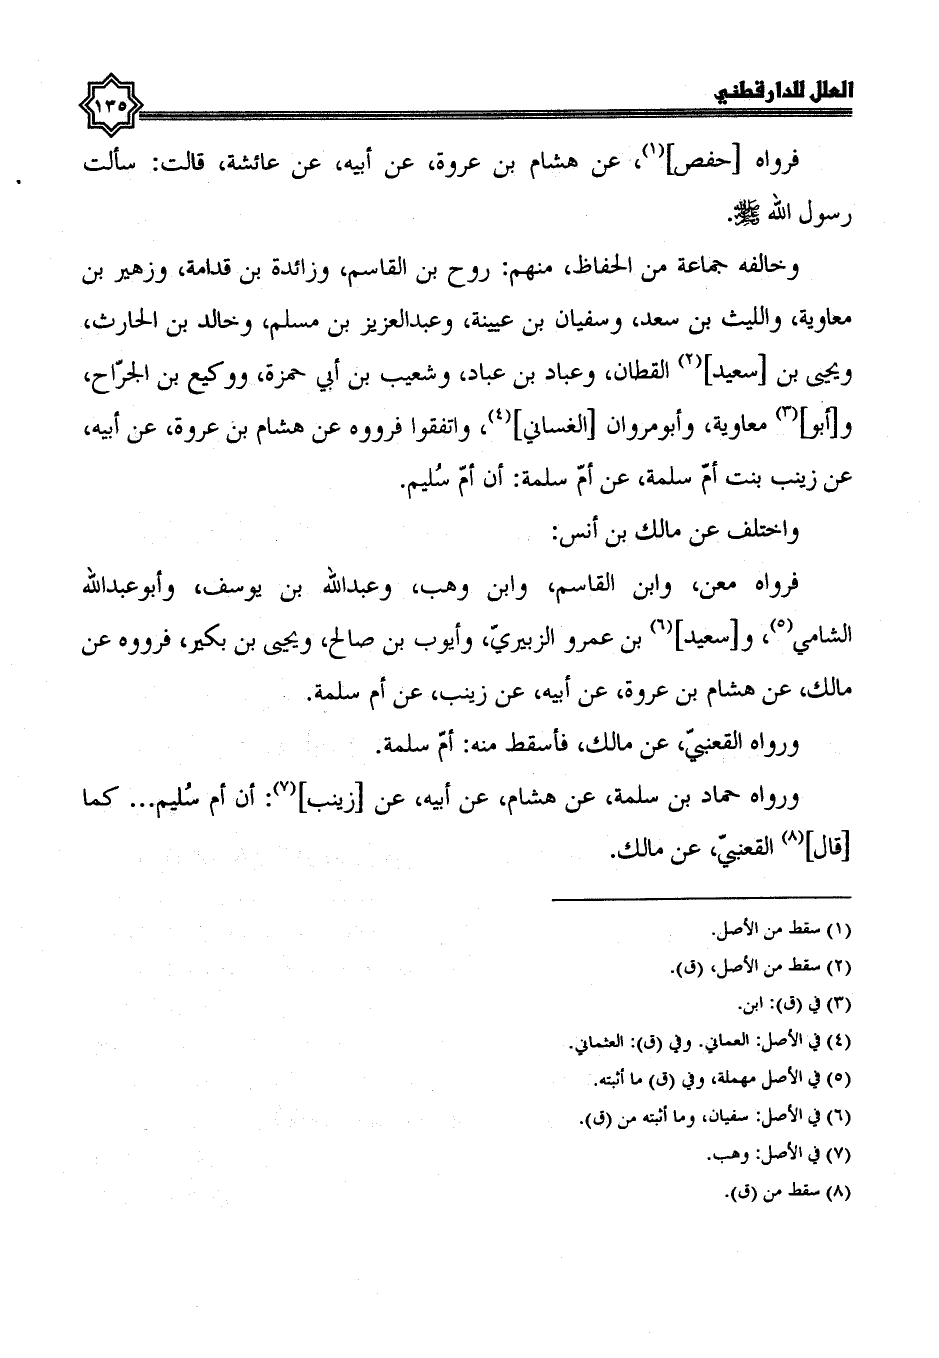 العلل للدارقطني
١٣٥
فرواه [حفص](١)، عن هشام بن عروة، عن أبيه، عن عائشة، قالت: سألت
رسول الله ﷺ.
وخالفه جماعة من الحفاظ، منهم: روح بن القاسم، وزائدة بن قدامة، وزهير بن
معاوية، والليث بن سعد، وسفيان بن عيينة، وعبدالعزيز بن مسلم، وخالد بن الحارث،
ويحيى بن [سعيد](٢) القطان، وعباد بن عباد، وشعيب بن أبي حمزة، ووكيع بن الجرّاح،
و[أبو](٣) معاوية، وأبومروان [الغساني](٤)، واتفقوا فرووه عن هشام بن عروة، عن أبيه،
عن زينب بنت أمّ سلمة، عن أمّ سلمة: أن أمّ سُليم.
واختلف عن مالك بن أنس:
فرواه معن، وابن القاسم، وابن وهب، وعبدالله بن يوسف، وأبوعبدالله
الشامي(٥)، و[سعيد](٦) بن عمرو الزبيريّ، وأيوب بن صالح، ويحيى بن بكير، فرووه عن
مالك، عن هشام بن عروة، عن أبيه، عن زينب، عن أم سلمة.
ورواه القعنبيّ، عن مالك، فأسقط منه: أمّ سلمة.
ورواه حماد بن سلمة، عن هشام، عن أبيه، عن [زينب](٧): أن أم سُليم... كما
[قال](٨) القعنبيّ، عن مالك.
(١) سقط من الأصل.
(٢) سقط من الأصل، (ق).
(٣) في (ق): ابن.
(٤) في الأصل: العماني. وفي (ق): العثماني.
(٥) في الأصل مهملة، وفي (ق) ما أثبته.
(٦) في الأصل: سفيان، وما أثبته من (ق).
(٧) في الأصل: وهب.
(٨) سقط من (ق).